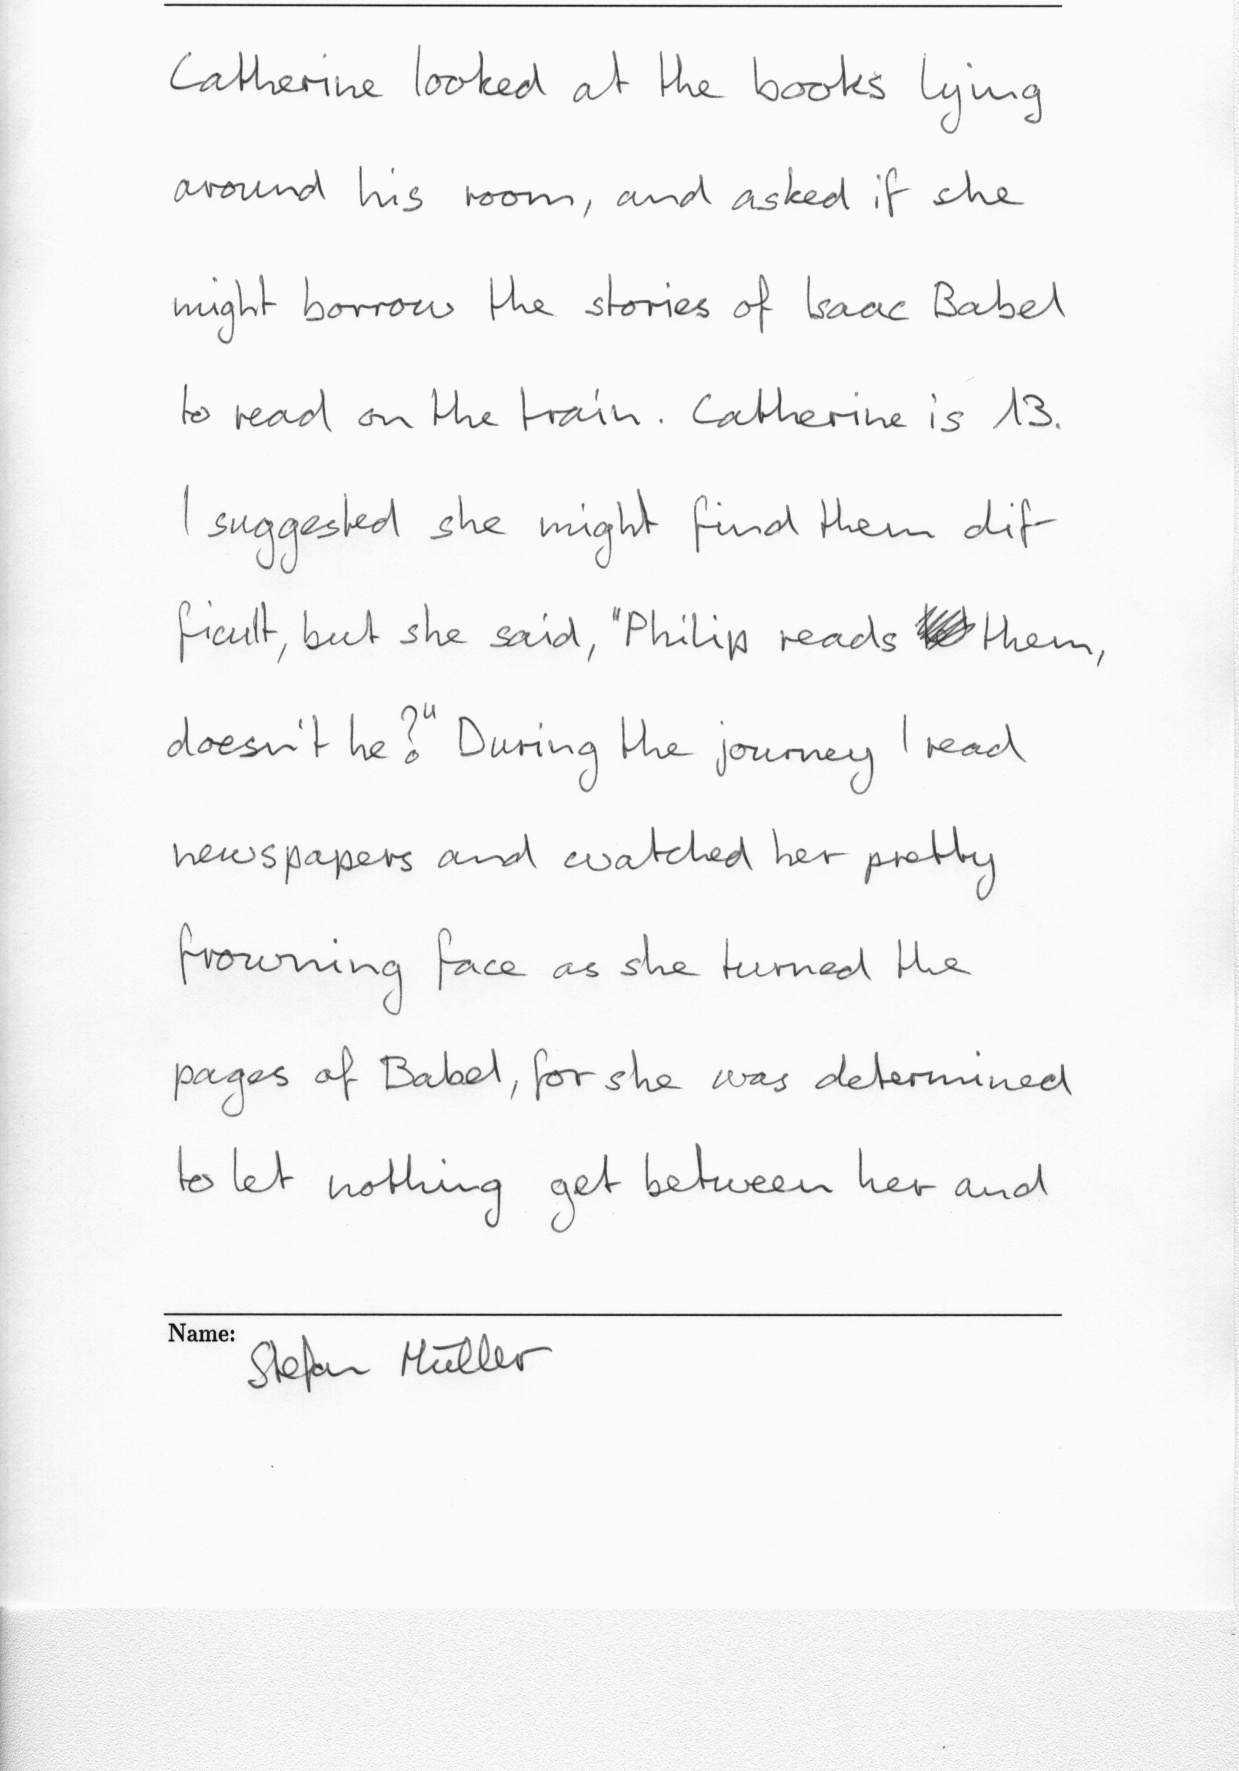 Catherine looked at the books lying
around his room, and asked if she
might borrow the stories of Isaac Babel
to read on the train. Catherine is 13.
I suggested she might find them dif
ficult, but she said, "Philip reads them,
doesn't he?" During the journey I read
newspapers and watched her pretty
frowning face as she turned the
pages of Babel, for she was determined
to let nothing get between her and
Name:
Stefan Müller